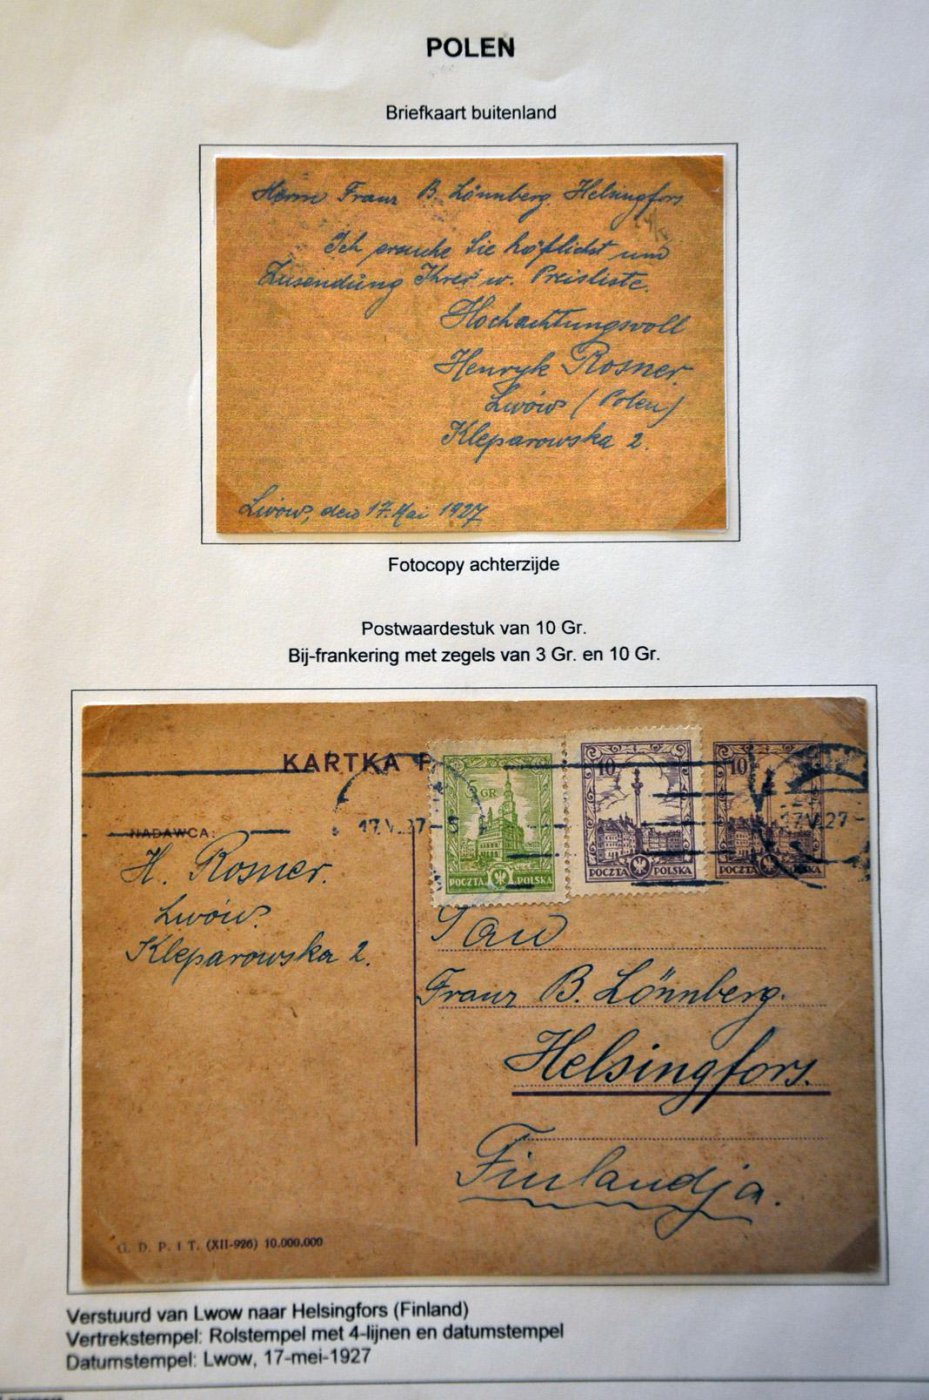 POLEN
Briefkaart buitenland
Herrn Franz B. Lönnberg Helsingfors
Ich ersuche Sie höflichst um
Zusendung Ihrer w. Preisliste.
Hochachtungsvoll
Henryk Rosner.
Lwów (Polen)
Kleparowska 2.
Lwów, den 17. Mai 1927
Fotocopy achterzijde
Postwaardestuk van 10 Gr.
Bij-frankering met zegels van 3 Gr. en 10 Gr.
KARTKA P
3 GR
10
10
17.V.27-
17.V.27-
POCZTA POLSKA
POCZTA POLSKA
POCZTA POLSKA
NADAWCA:
H. Rosner.
Lwów.
Kleparowska 2.
Pan
Franz B. Lönnberg.
Helsingfors.
Finlandja.
G. D. P. i T. (XII-926) 10.000.000
Verstuurd van Lwow naar Helsingfors (Finland)
Vertrekstempel: Rolstempel met 4-lijnen en datumstempel
Datumstempel: Lwow, 17-mei-1927